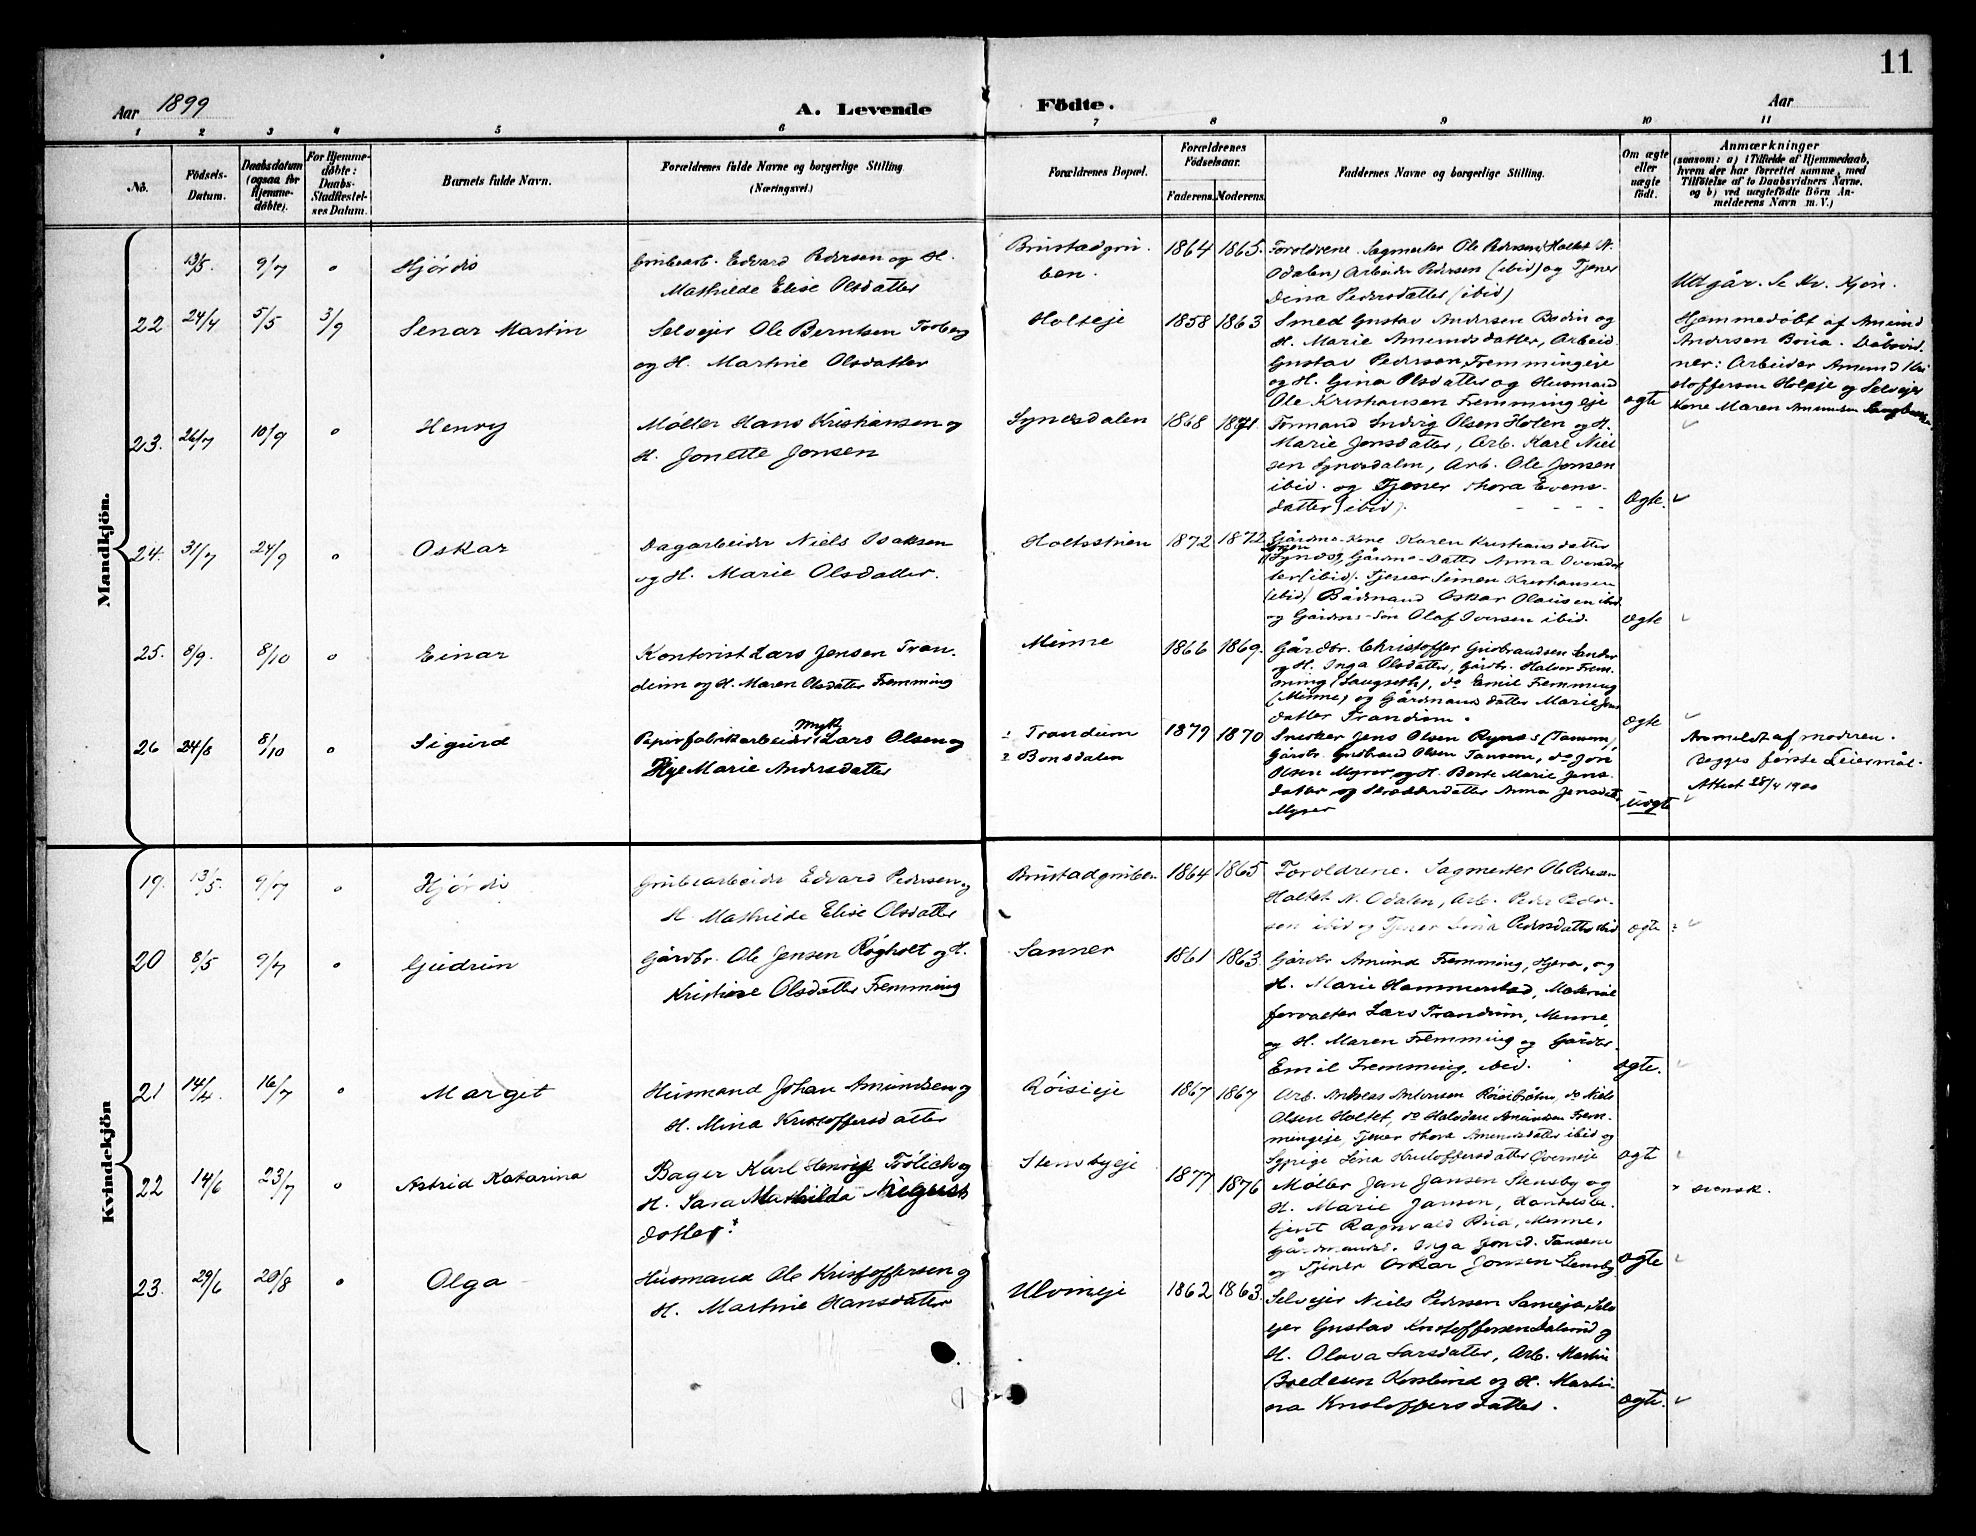 11
Aar 1899
A. Levende
Födte.
Aar
1 2 3 4 5 6 7 8 9 10 11
No.
Födsels-
Datum.
Daabsdatum
(ogsaa for
Hjemme-
döbte).
For Hjemme-
döbte:
Daabs-
Stadfæstel-
ses Datum.
Barnets fulde Navn.
Forældrenes fulde Navne og borgerlige Stilling
(Næringsvei.)
Forældrenes Bopæl.
Forældrenes
Födselsaar.
Faderens.
Moderens.
Faddernes Navne og borgerlige Stilling.
Om ægte
eller
uægte
födt.
Anmærkninger
(saasom: a) i Tilfælde af Hjemmedaab,
hvem der har forrettet samme, med
Tilföielse af to Daabsvidners Navne,
og b) ved uægtefödte Börn An-
melderens Navn m. V.)
Mandkjön.
13/5. 9/7 " Hjørdis
Grubearb. Edvard Pedersen og H.
Mathilde Elise Olsdatter
Brustadgru-
ben.
1864 1865.
Foreldrene Sagmester Ole Pedersen (Holtet N.
Odalen) Arbeider Pedersen (ibid) og Tjener
Dina Pedersdatter (ibid)
Udgår. Se Kv. Kjön.
22 24/4 5/5 3/9 Senar Martin
Selveier Ole Berntsen Torberg
og H. Martine Olsdatter
Holteje
1858 1863
Smed Gustav Andersen Bodin og
H. Marie Amundsdatter, Arbeid.
Gustav Pedersen Fremmingeje
og H. Gina Olsdatter og Husmand
Ole Kristiansen Fremmingeje
ægte
Hjemmedøbt af Amund
Andersen Boria. Dåbsvid-
ner: Arbeider Amund Kri
stoffersen Holteje og Selveier
Kone Maren Amundsen
23. 26/7 10/9 " Henry
Møller Hans Kristiansen og
H. Jonette Jonsen
Synersdalen
1868 1871.
Formand Ludvig Olsen Holen og H.
Marie Jonsdatter, Arb. Karl Niel
sen Synersdalen, Arb. Ole Jonsen
ibid. og Tjener Thora Evens-
datter (ibid).
Ægte.
24. 31/7 24/9 " Oskar
Dagarbeider Niels Isaksen
og H. Marie Olsdatter.
Holtsstuen
1872 1872
Gårdm.-Kone Karen Kristiansdatter
Gårdm.-Datter Anna Iversdat
ter (ibid). Tjener Simen Kristiansen
(ibid) Bådmand Oskar Olausen ibid.
og Gårdm.-Søn Olaf Iversen ibid.
ægte
25. 8/9. 8/10 " Einar
Kontorist Lars Jensen Tran-
dum og H. Maren Olsdatter Fremming
Minne
1866 1869.
Gårdbr. Christoffer Gudbrandsen
og H. Inga Olsdatter, Gårdbr. Halvor Frem-
ming (Langseth), do Emil Fremming
(Minne) og Gårdmands datter Marie Jens
datter Trandum.
ægte
26 24/8 8/10 " Sigurd
Papirfabrikarbeider Lars Olsen og
Pige Marie Andersdatter
1 Trandum
2 Bonsdalen
1879 1870
Snedker Jens Olsen Rynes (Tansem),
Gårdbr. Gudbrand Olsen Tansem, do Jon
Olsen Myrer og H. Berte Marie Jens-
datter og Skrædderdatter Anna Jensdatter
Myrer
uægte
Anmeldt af moderen.
Begges første Leiermål.
Attest 28/4 1900
Kvindekjön
19. 13/5. 9/7 " Hjørdis
Grubearbeider Edvard Pedersen og
H. Mathilde Elise Olsdatter
Brustadgruben
1864 1865
Foreldrene. Sagmester Ole Pedersen
Holtet N. Odalen, Arb. Peder Peder-
sen ibid og Tjener Lina Pedersdatter ibid
ægte
20 8/5 9/7 " Gudrun
Gårdbr. Ole Jensen Røgholt og H.
Kristine Olsdatter Fremming
Sanner
1861 1863.
Gårdbr Amund Fremming, Hjera, og
H. Marie Hammerstad, Material
forvalter Lars Trandum, Minne,
og H. Maren Fremming og Gårdbr.
Emil Fremming, ibid.
ægte.
21 14/4. 16/7 " Margit
Husmand Johan Amundsen og
H. Mina Kristoffersdatter
Røisieje
1867 1867
Arb. Andreas Andersen, do Niels
Olsen Holtet, do Halvdan Amundsen Frem-
mingeje, Tjener Thora Amundsdatter ibid og
Sypige Lina Kristoffersdatter
ægte
22 14/6 23/7 " Astrid Katarina
Bager Karl Henrik Frölich og
H. Sara Mathilda
dotter:
Stensbyeje
1877 1876
Møller Jan Jansen Stensby og
H. Marie Jansen, Handelsbe-
tjent Ragnvald Bria, Minne,
Gårdmandsd. Inga Jonsd. Tansem
og Tjener Oskar Jonsen Stensby
ægte
svensk.
23. 29/6 20/8 " Olga
Husmand Ole Kristoffersen og
H. Martine Hansdatter
Ulvineje
1862 1863.
Selveier Niels Pedersen, Selv
ejer Gustav Kristoffersen og
H. Olava Larsdatter, Arb. Martin
Bredesen og H. Marti-
na Kristoffersdatter.
ægte.